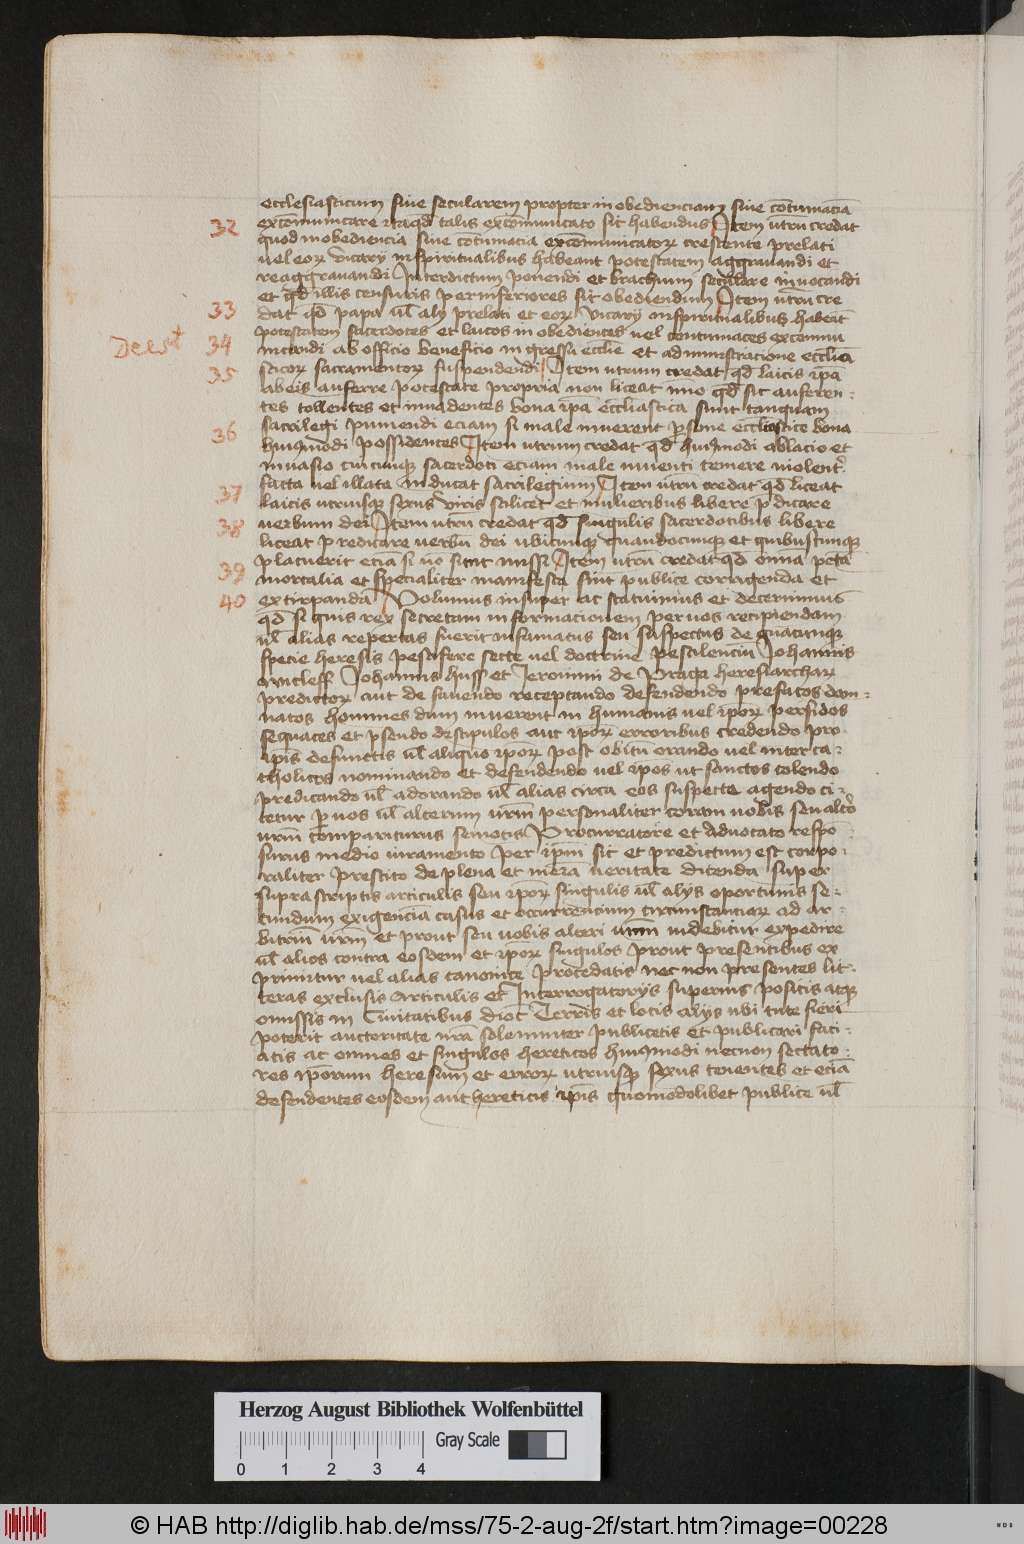 ecclesiasticum siue secularem propter inobedienciam siue cōtumaciā
32 excōmunicare itaqd talis excōmunicato sit habendus Item utrū credat
quod inobediencia siue cōtumacia excōmunicatorꝝ crescente prelati
uel eorꝝ vicarii in spiritualibus habeant potestatem aggrauandi et
reaggrauandi Interdictum ponendi et brachium seculare inuocandi
et qd illis censuris per inferiores sit obediendum Item utrū cre
33 dat qd papa ul alij prelati et eorꝝ vicarij in spiritualibus habeāt
potestatem sacerdotes et laicos inobedientes uel contumaces excommu
Deest 34 nicandi ab officio beneficio ingressu ecclīe et administracione ecclīa
35 sticorꝝ sacramentorꝝ suspendendi Item utrum credat qd laicis ipā
abeis auferre potestate propria non liceat imo qd sit auferen
tes tollentes et inuadentes bona ipā ecclīastica sunt tanquam
sacrilegi puniendi eciam si male uiuerent psone ecclīastice bona
36 huiusmodi possidentes Item utrum credat qd huiusmodi ablacio et
inuasio cuicunque sacerdoti eciam male uiuenti temere uiolent
facta uel illata inducat sacrilegium Item utrū credat qd liceat
37 laicis utriusque sexus viris scilicet et mulieribus libere pdicare
38 uerbum dei Item utrū credat qd singulis sacerdotibus libere
liceat predicare uerbū dei ubicunque quandocunque et quibuscunque
placuerit eciā si nō sint missi Item utrū credat qd omnia peccā
39 mortalia et specialiter manifesta sint publice corrigenda et
40 extirpanda Volumus insuper ac statuimus et decernimus
qd si quis rex secretam informacionem per uos recipiendam
ul alias repertus fuerit infamatus seu suspectus de quacunque
specie heresis pestifere secte uel doctrine pestilenciu Iohannis
Wicleff Iohannis Huss et Ieronimi de Praga heresiarcharꝝ
predictorꝝ aut de fauendo receptando defendendo prefatos dam
natos homines dum uiuerent in humanis uel iporꝝ perfidos
sequaces et pseudo discipulos aut iporꝝ erroribus credendo pro
ipis defunctis ul aliquo iporꝝ post obitū orando uel inter ca
tholicos nominando et defendendo uel ipos ut sanctos colendo
predicando ul adorando ul alias circa eos suspecte agendo ci
tetur p uos ul alterum urm personaliter coram uobis seu altō
urm compariturus semotis Procurratore et Aduocato respō
surus medio iuramento per ipm sit et predictum est corpo
raliter prestito de plena et mera ueritate dicenda super
suprascriptis articulis seu iporꝝ singulis ul alijs oportunis se
cundum exigenciā casus et occurrencium circumstanciarꝝ ad ar
bitriū urm et prout seu uobis alteri urm uidebitur expedire
ul alios contra eosdem et iporꝝ singulos prout presentibus ex
primitur uel alias canonice procedatis nec non presentes lit
teras exclusis Articulis et Interrogatorijs superius positis atque
omissis in Ciuitatibus dioc Terris et locis alijs ubi tute fieri
poterit auctoritate nrā solemniter publicetis et publicari faci
atis ac omnes et singulos hereticos huiusmodi necnon sectato
res iporum heresum et errorꝝ utriusque sexus tenentes et eciā
defendentes eosdem aut hereticis ipis quomodolibet publice ul
Herzog August Bibliothek Wolfenbüttel
Gray Scale
0 1 2 3 4
© HAB http://diglib.hab.de/mss/75-2-aug-2f/start.htm?image=00228